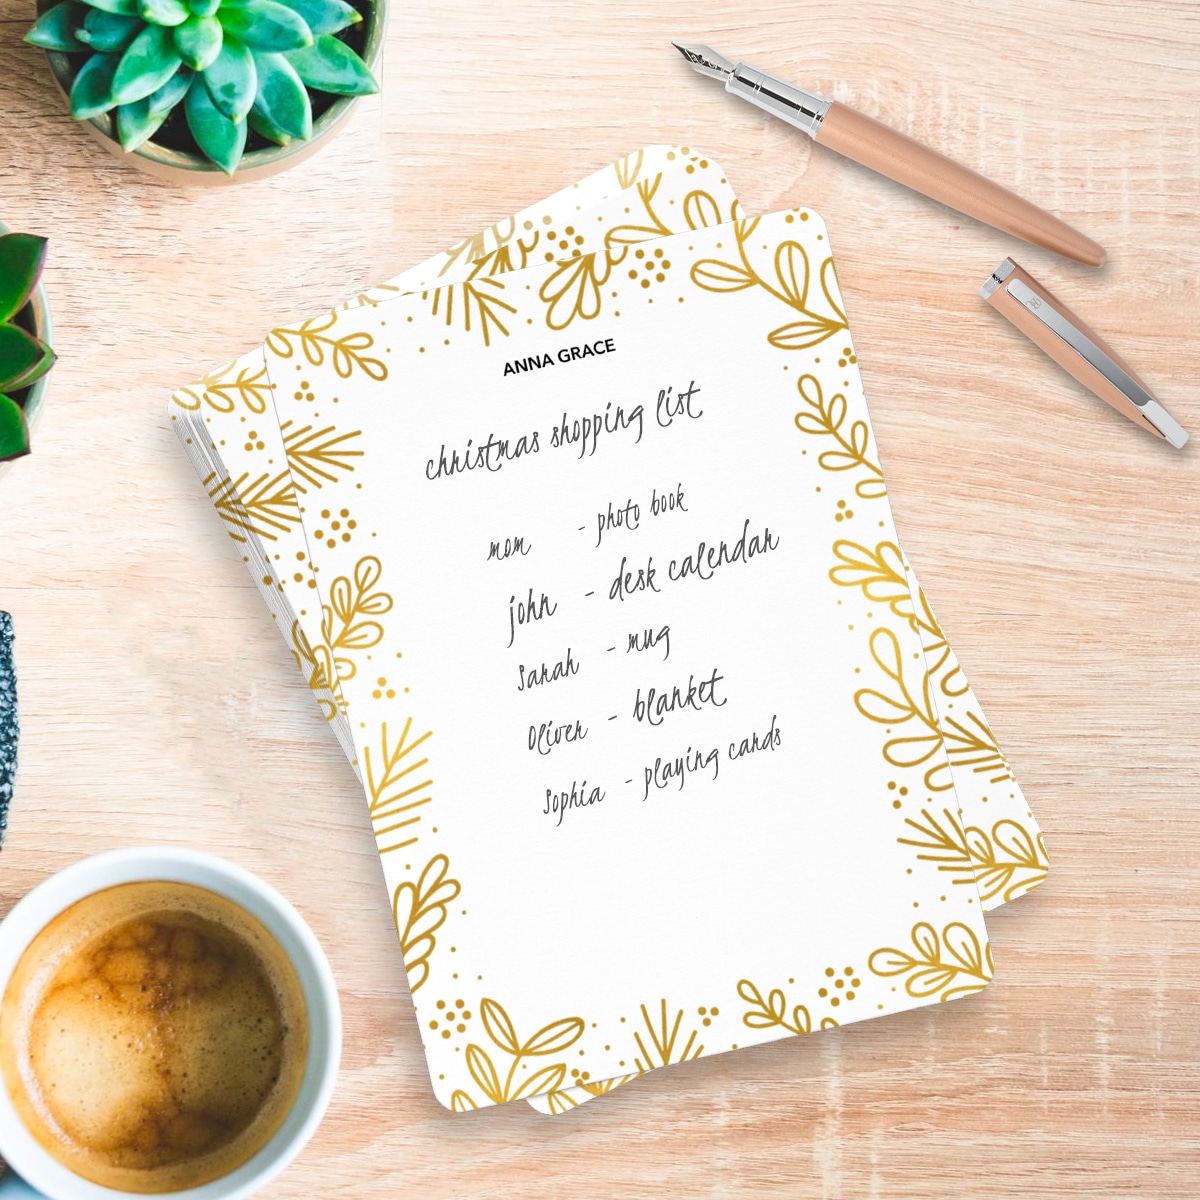 ANNA GRACE
christmas shopping list
mom - photo book
john - desk calendar
Sarah - mug
Oliver - blanket
Sophia - playing cards